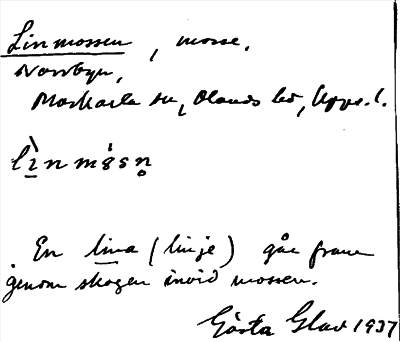 Linmossen, mosse.
Norrbyn,
Markarla sn, Olands hd, Upps. l.
lìnmósn̥
En lina (linje) går fram
genom skogen invid mossen.
Gösta Glav 1937